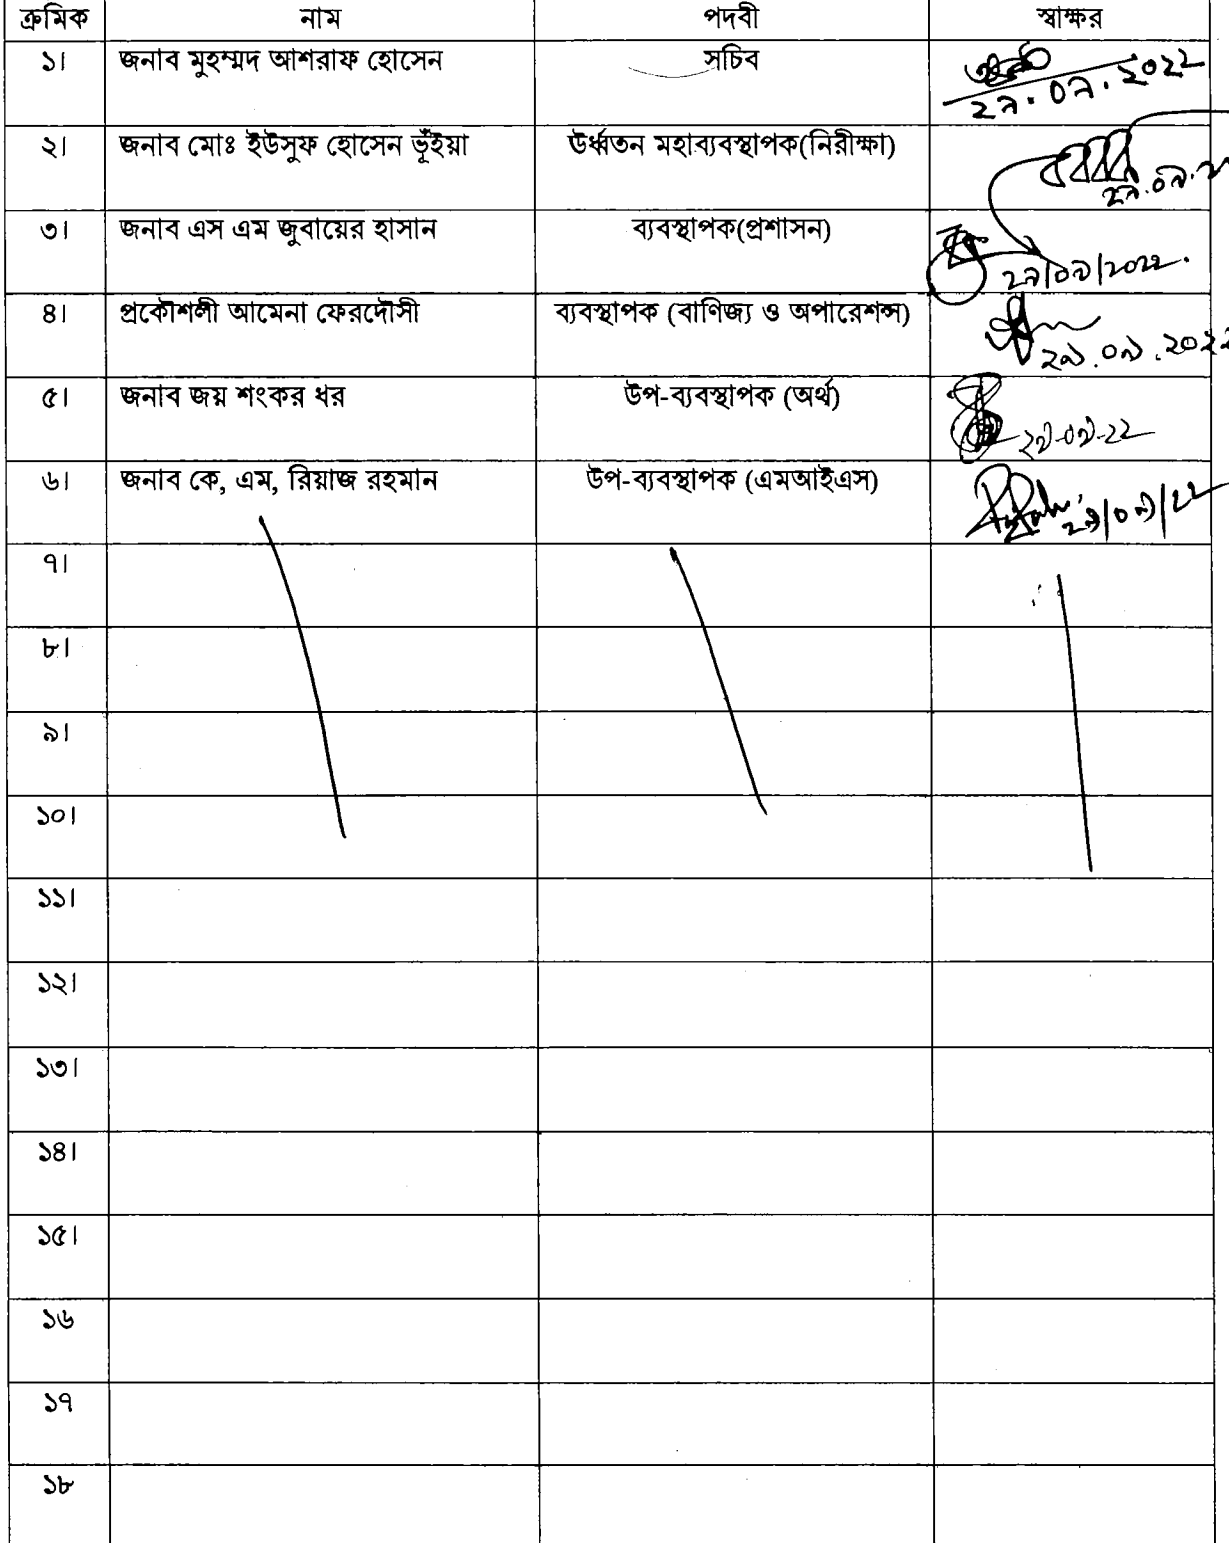 ক্রমিক নাম পদবী স্বাক্ষর
১। জনাব মুহম্মদ আশরাফ হোসেন সচিব
২। জনাব মোঃ ইউসুফ হোসেন ভূঁইয়া ঊর্ধ্বতন মহাব্যবস্থাপক(নিরীক্ষা)
৩। জনাব এস এম জুবায়ের হাসান ব্যবস্থাপক(প্রশাসন)
২৯/০৯/২০২২.
৪। প্রকৌশলী আমেনা ফেরদৌসী ব্যবস্থাপক (বাণিজ্য ও অপারেশন্স)
২৯.০৯.২০২২
৫। জনাব জয় শংকর ধর উপ-ব্যবস্থাপক (অর্থ)
২৯-০৯-২২
৬। জনাব কে, এম, রিয়াজ রহমান উপ-ব্যবস্থাপক (এমআইএস)
২৯/০৯/২২
৭।
৮।
৯।
১০।
১১।
১২।
১৩।
১৪।
১৫।
১৬
১৭
১৮